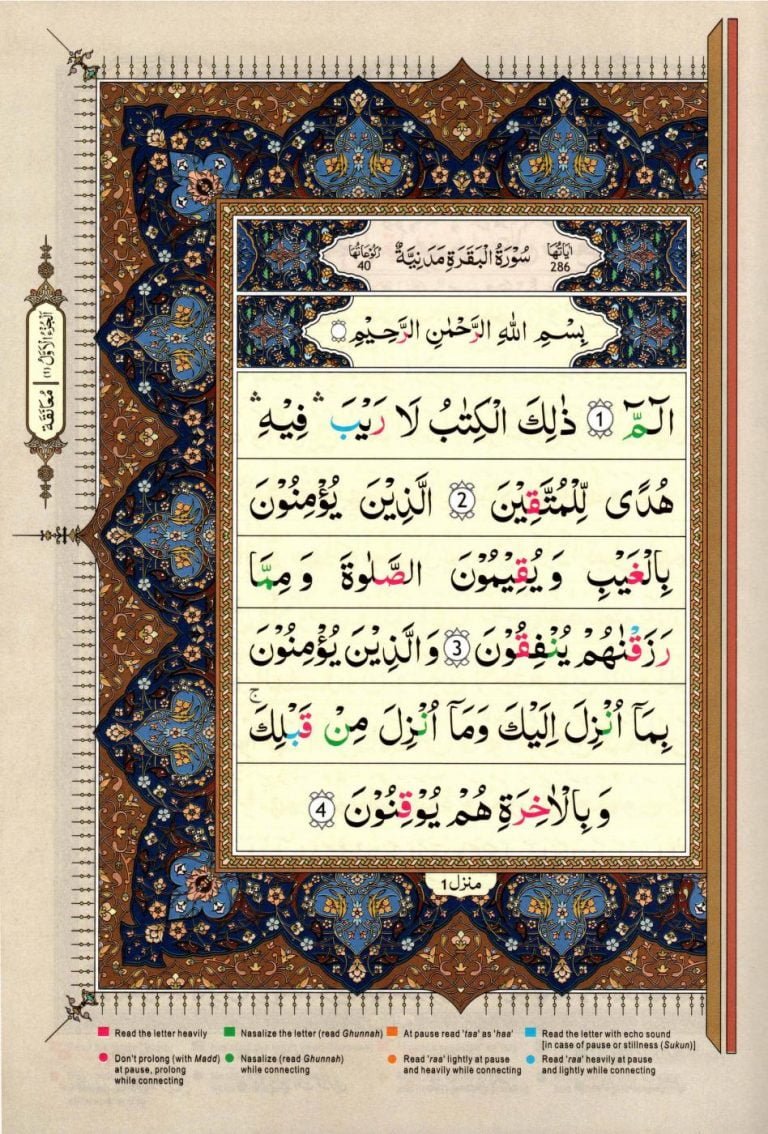 اٰيَاتُهَا 286
سُوْرَةُ الْبَقَرَةِ مَدَنِيَّةٌ
رُكُوْعَاتُهَا 40
بِسْمِ اللهِ الرَّحْمٰنِ الرَّحِيْمِ
الٓمّٓ 1 ذٰلِكَ الْكِتٰبُ لَا رَيْبَ ۛ فِيْهِ ۛ
هُدًى لِّلْمُتَّقِيْنَ 2 الَّذِيْنَ يُؤْمِنُوْنَ
بِالْغَيْبِ وَيُقِيْمُوْنَ الصَّلٰوةَ وَمِمَّا
رَزَقْنٰهُمْ يُنْفِقُوْنَ 3 وَالَّذِيْنَ يُؤْمِنُوْنَ
بِمَآ اُنْزِلَ اِلَيْكَ وَمَآ اُنْزِلَ مِنْ قَبْلِكَ ۚ
وَبِالْاٰخِرَةِ هُمْ يُوْقِنُوْنَ 4
منزل 1
اَلْجُزْءُ الْاَوَّلُ (١) | مُعَانَقَة
Read the letter heavily
Nasalize the letter (read Ghunnah)
At pause read 'taa' as 'haa'
Read the letter with echo sound
[in case of pause or stillness (Sukun)]
Don't prolong (with Madd)
at pause, prolong
while connecting
Nasalize (read Ghunnah)
while connecting
Read 'raa' lightly at pause
and heavily while connecting
Read 'raa' heavily at pause
and lightly while connecting